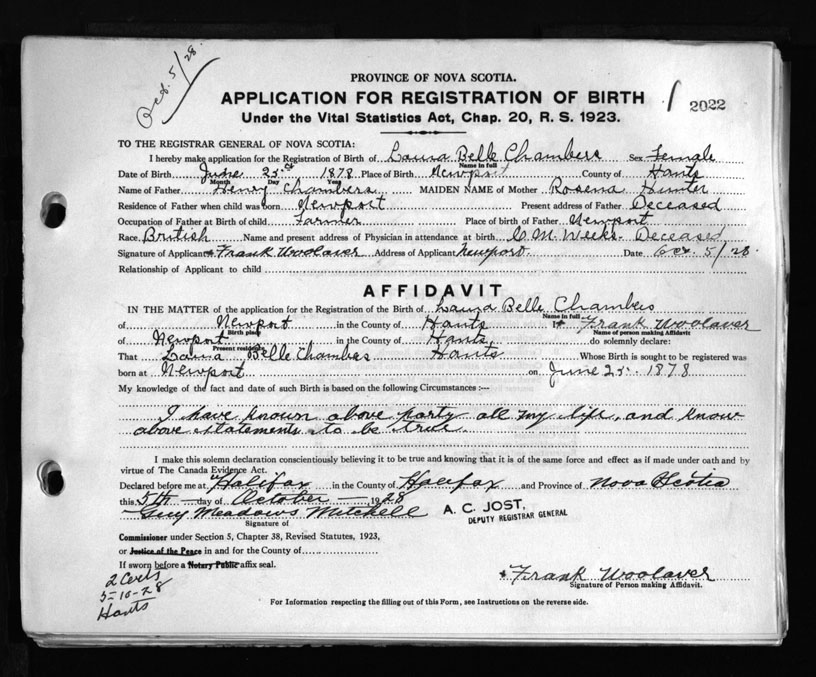 Oct. 5/28.
PROVINCE OF NOVA SCOTIA.
APPLICATION FOR REGISTRATION OF BIRTH
2022
Under the Vital Statistics Act, Chap. 20, R. S. 1923.
TO THE REGISTRAR GENERAL OF NOVA SCOTIA:
I hereby make application for the Registration of Birth of Laura Belle Chambers Sex Female
Name in full
Date of Birth June 25 1878 Place of Birth Newport County of Hants
Month Day Year
Name of Father Henry Chambers MAIDEN NAME of Mother Rosena Hunter
Residence of Father when child was born Newport Present address of Father Deceased
Occupation of Father at Birth of child Farmer Place of birth of Father Newport
Race British Name and present address of Physician in attendance at birth C. M. Weeks - Deceased
Signature of Applicant Frank Woolaver Address of Applicant Newport. Date Oct. 5/28.
Relationship of Applicant to child
AFFIDAVIT
IN THE MATTER of the application for the Registration of the Birth of Laura Belle Chambers
Name in full
of Newport in the County of Hants I Frank Woolaver
Birth place Name of person making Affidavit
of Newport in the County of Hants do solemnly declare:
Present residence
That Laura Belle Chambers Hants Whose Birth is sought to be registered was
born at Newport on June 25. 1878
My knowledge of the fact and date of such Birth is based on the following Circumstances :—
I have known above party all my life, and know
above statements to be true.
I make this solemn declaration conscientiously believing it to be true and knowing that it is of the same force and effect as if made under oath and by
virtue of The Canada Evidence Act.
Declared before me at Halifax in the County of Halifax and Province of Nova Scotia
this 5th day of October 1928
Guy Meadows Mitchell A. C. JOST,
DEPUTY REGISTRAR GENERAL
Signature of
Commissioner under Section 5, Chapter 38, Revised Statutes, 1923,
or Justice of the Peace in and for the County of
If sworn before a Notary Public affix seal.
2 Certs
5-10-28
Hants
Frank Woolaver
Signature of Person making Affidavit.
For Information respecting the filling out of this Form, see Instructions on the reverse side.